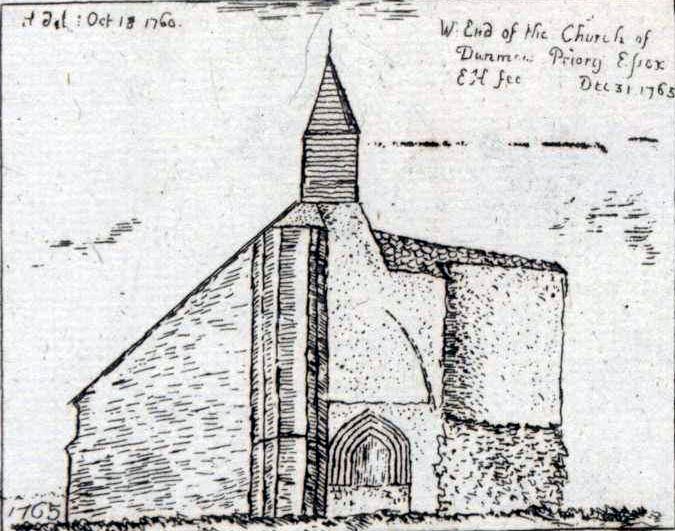 del: Oct 18 1760.
W. End of the Church of
Dunmow Priory Eſsex
EH fec Dec 31 1765
1765